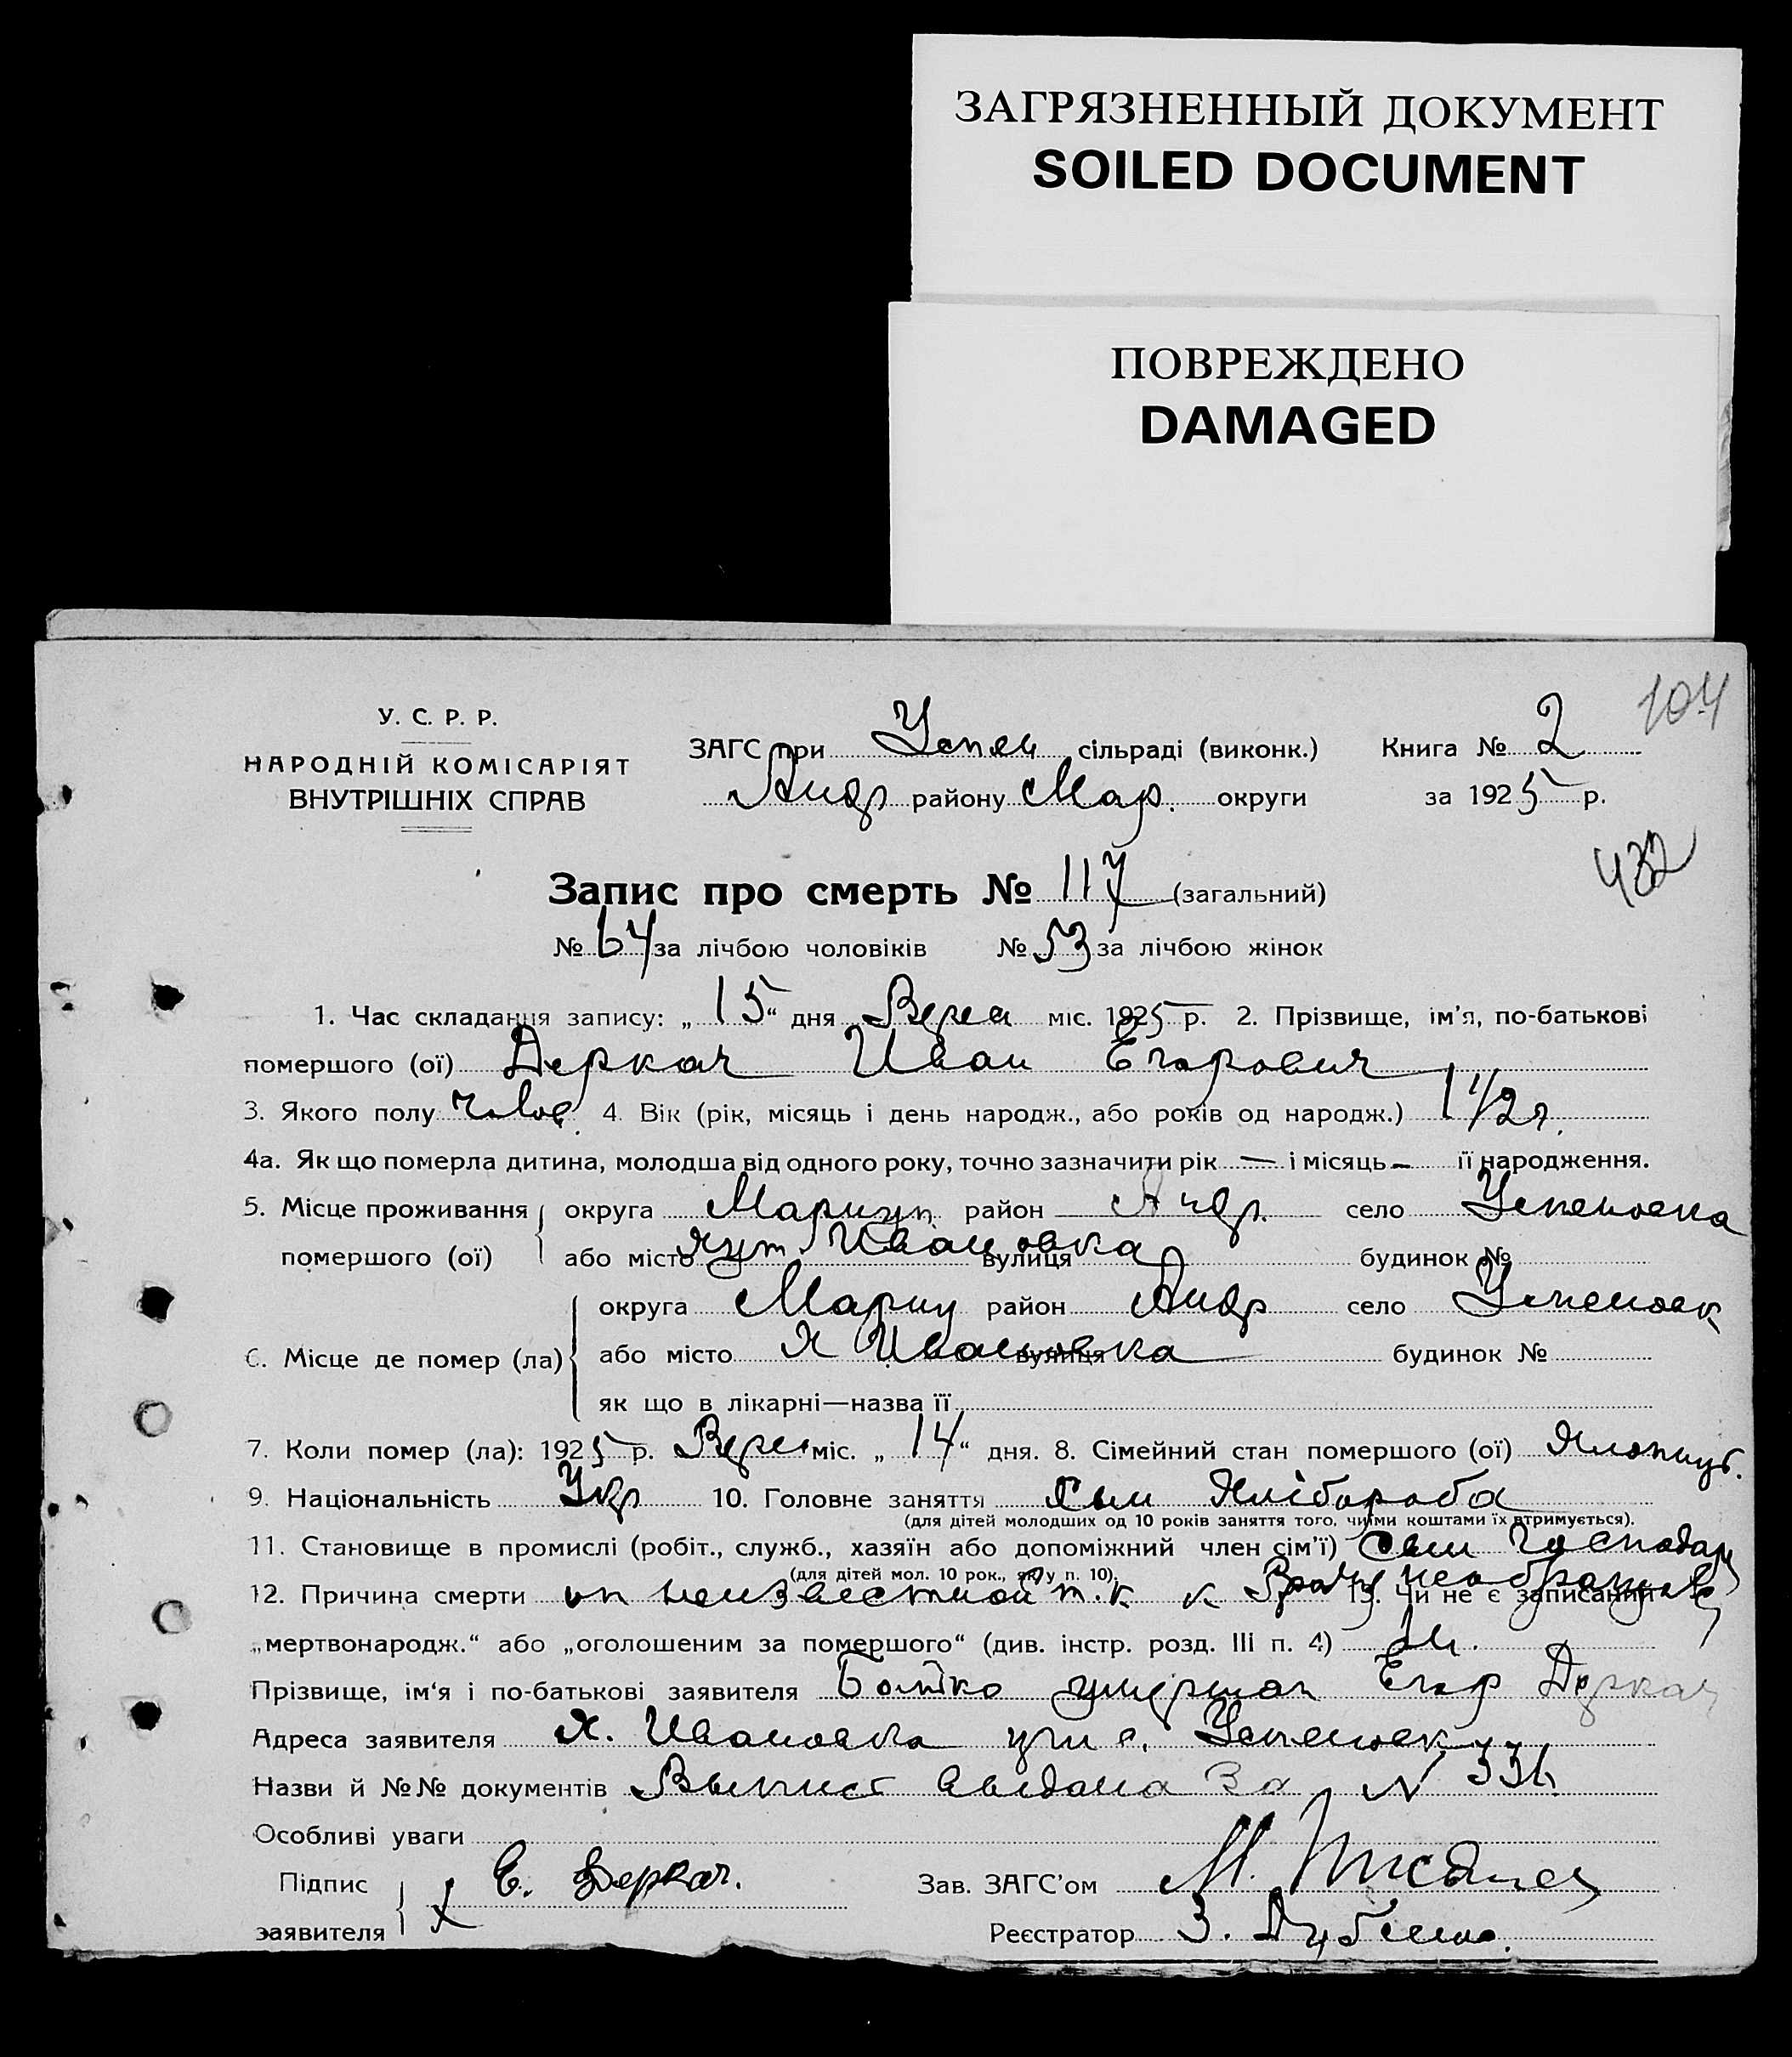 ЗАГРЯЗНЕННЫЙ ДОКУМЕНТ
SOILED DOCUMENT
ПОВРЕЖДЕНО
DAMAGED
104
У. С. Р. Р.
НАРОДНІЙ КОМІСАРІЯТ
ВНУТРІШНІХ СПРАВ
ЗАГС при Успен сільраді (виконк.) Книга № 2
Андр району Мар. округи за 1925 р.
432
Запис про смерть № 117 (загальний)
№ 64 за лічбою чоловіків № 53 за лічбою жінок
1. Час складання запису: „15“ дня Верес міс. 1925 р. 2. Прізвище, ім'я, по-батькові
помершого (ої) Деркач Иван Егорович
3. Якого полу чолов. 4. Вік (рік, місяць і день народж., або років од народж.) 1 1/2 г.
4а. Як що померла дитина, молодша від одного року, точно зазначити рік — і місяць – її народження.
5. Місце проживання округа Мариуп. район Андр. село Успеновка
помершого (ої) або місто хут. Ивановка вулиця будинок №
округа Мариу район Андр село Успеновк
6. Місце де помер (ла) або місто Х Ивановка вулиця будинок №
як що в лікарні—назва її
7. Коли помер (ла): 1925 р. Верес міс. „14“ дня. 8. Сімейний стан помершого (ої)
9. Національність Укр 10. Головне заняття Сын Хлібороба
(для дітей молодших од 10 років заняття того, чиїми коштами їх втримується).
11. Становище в промислі (робіт., служб., хазяїн або допоміжний член сім'ї) Сын господар
(для дітей мол. 10 рок., як у п. 10).
12. Причина смерти от неизвестной т.к к Врачу не обращались 13. Чи не є записаний
„мертвонародж.“ або „оголошеним за помершого“ (див. інстр. розд. III п. 4) Ні.
Прізвище, ім'я і по-батькові заявителя Батько умершаг Егор Деркач
Адреса заявителя х. Ивановка при с. Успеновк
Назви й №№ документів Выпись выдана За №
Особливі уваги
Підпис
заявителя Е. Деркач.
Зав. ЗАГС'ом М.
Реєстратор З.